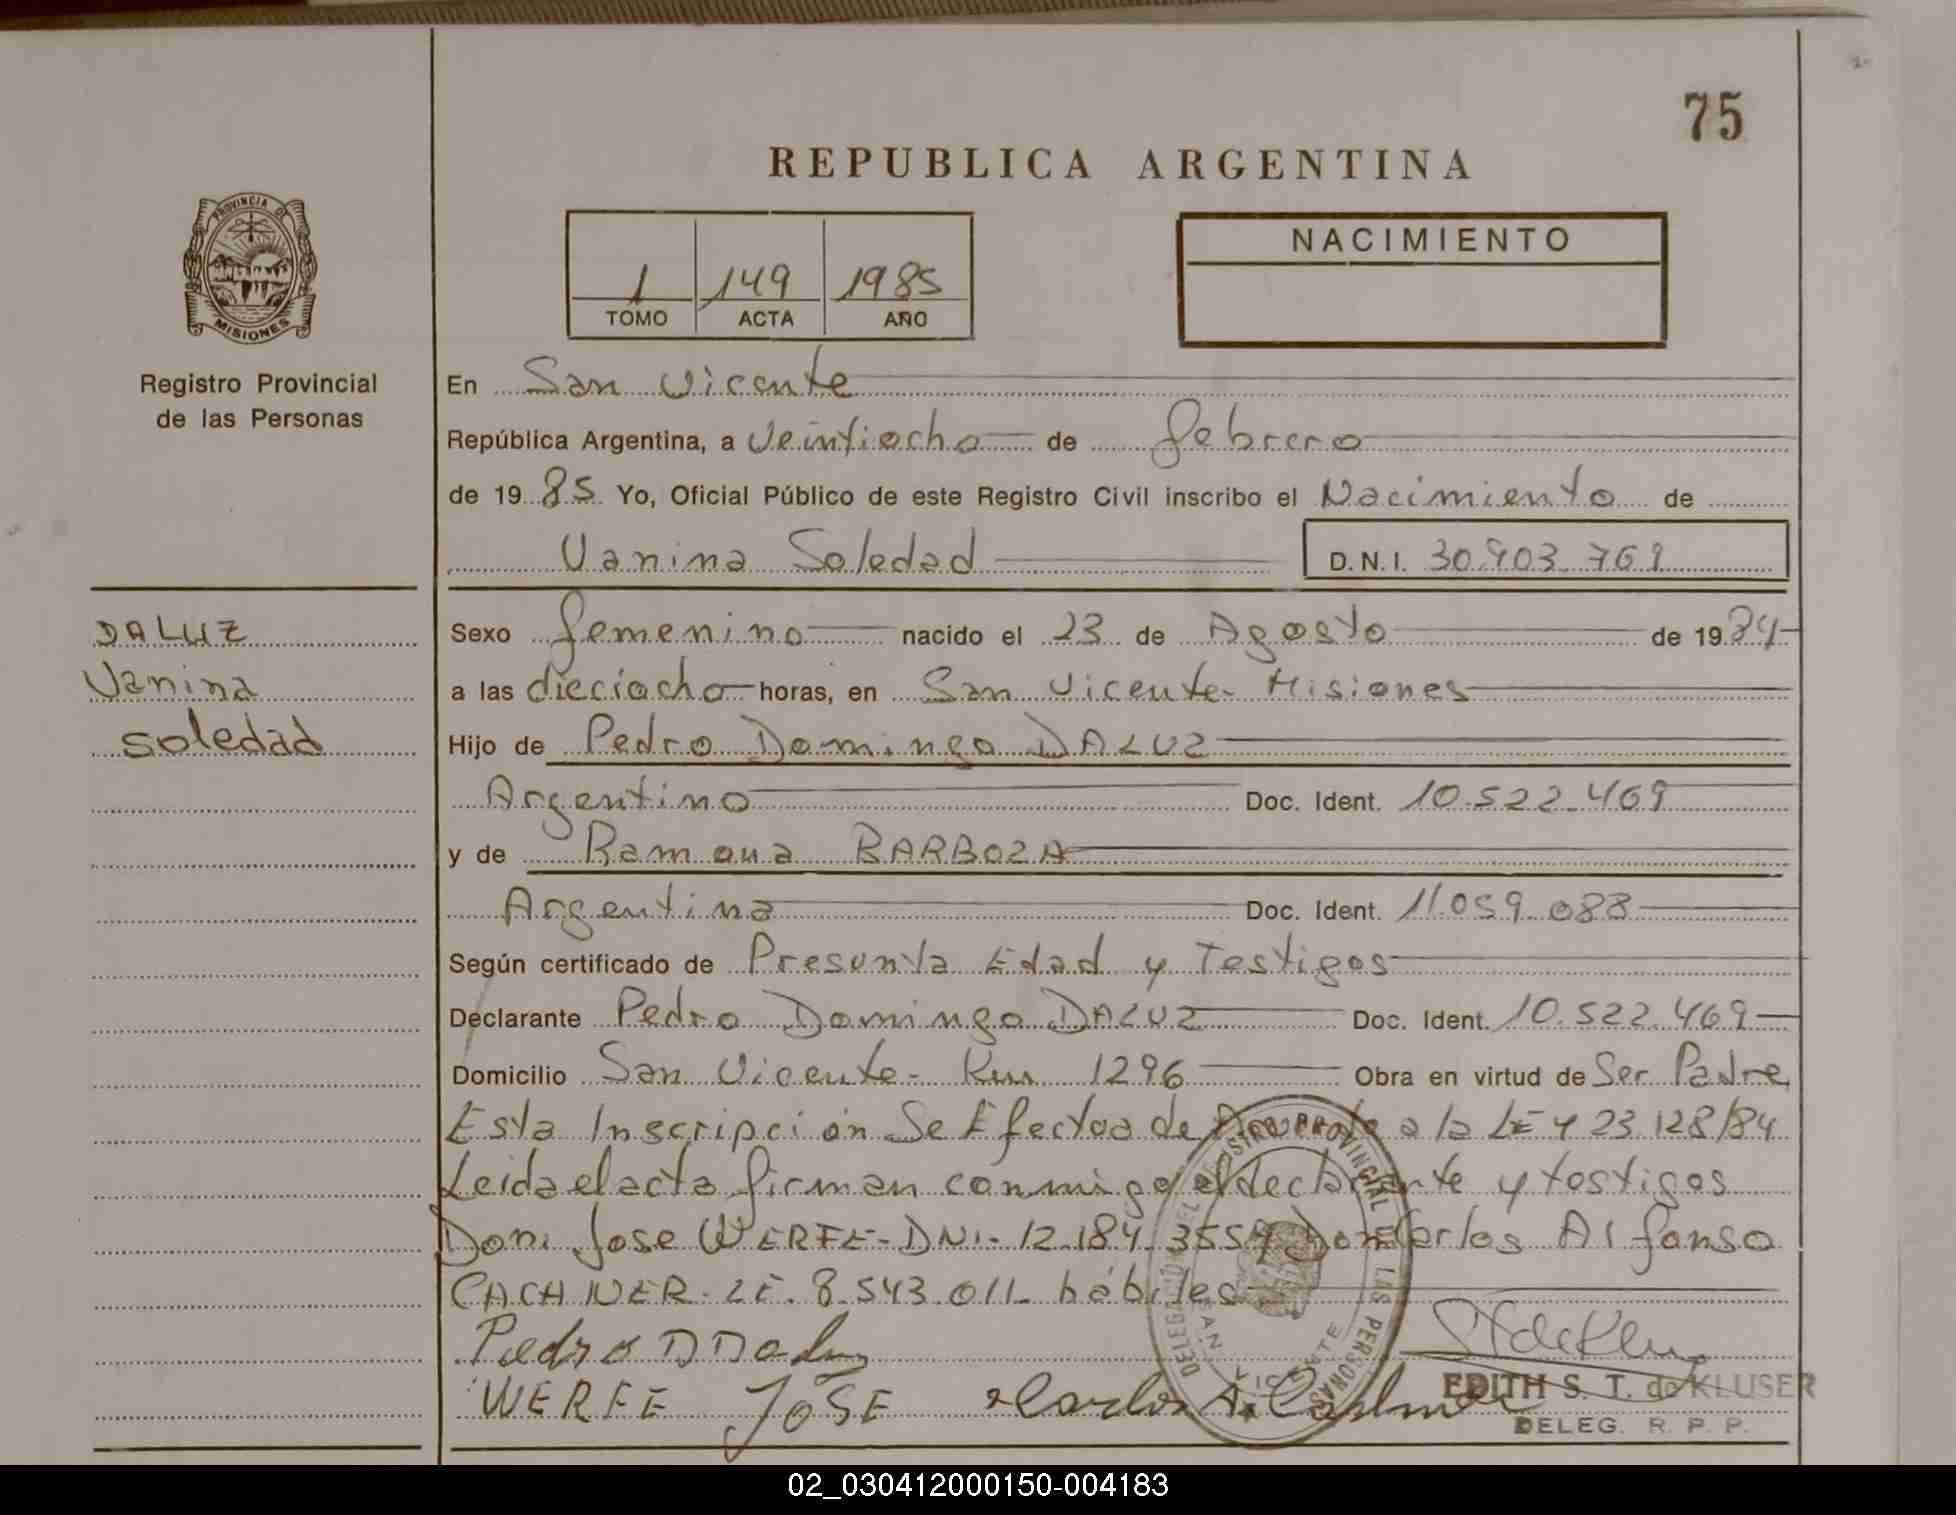 75
REPUBLICA ARGENTINA
PROVINCIA DE
MISIONES
Registro Provincial
de las Personas
1 149 1985
TOMO ACTA AÑO
NACIMIENTO
En San Vicente
República Argentina, a Veintiocho de febrero
de 1985 Yo, Oficial Público de este Registro Civil inscribo el Nacimiento de
Vanina Soledad D.N.I. 30.903.769
DALUZ
Vanina
Soledad
Sexo femenino nacido el 23 de Agosto de 1984
a las dieciocho horas, en San Vicente- Misiones
Hijo de Pedro Domingo DALUZ
Argentino Doc. Ident. 10.522.469
y de Ramona BARBOZA
Argentina Doc. Ident. 11.059.088
Según certificado de Presunta Edad y Testigos
Declarante Pedro Domingo DALUZ Doc. Ident. 10.522.469
Domicilio San Vicente- Km 1296 Obra en virtud de Ser Padre
Esta Inscripción Se Efectua de a la LEY 23.128/84
Leida el acta firman conmigo el declarante y testigos
Don. Jose WERFE- DNI- 12.184. Don Carlos Alfonso
CACHNER- LE. 8.543.011- hábiles
Pedro D Daluz
WERFE JOSE Carlos A.
EDITH S. T. de KLUSER
DELEG. R. P. P.
02_030412000150-004183